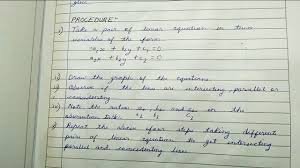 glue
PROCEDURE:-
i) Take a pair of linear equation in two
variables of the form
a₁x + b₁y + c₁ = 0
a₂x + b₂y + c₂ = 0
ii) Draw the graph of the equations
iii) Observe if the lines are intersecting, parallel or
coinciding
iv) Note the ratios a₁, b₁ and c₁ on the
observation table. a₂ b₂ c₂
v) Repeat the above four steps taking different
pair of linear equation to get intersecting
parallel and coincident lines